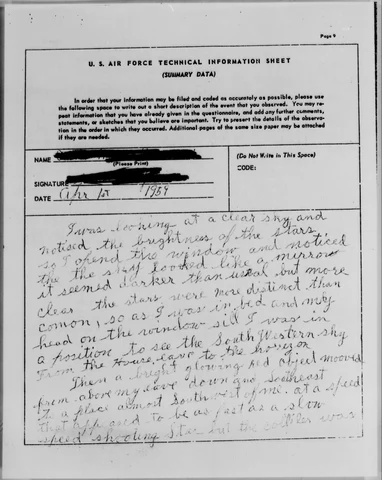 Page 9
U. S. AIR FORCE TECHNICAL INFORMATION SHEET
(SUMMARY DATA)
In order that your information may be filed and coded as accurately as possible, please use
the following space to write out a short description of the event that you observed. You may re-
peat information that you have already given in the questionnaire, and add any further comments,
statements, or sketches that you believe are important. Try to present the details of the observa-
tion in the order in which they occurred. Additional pages of the same size paper may be attached
if they are needed.
NAME
(Please Print)
(Do Not Write in This Space)
CODE:
SIGNATURE
DATE Apr 1959
I was looking at a clear sky and
noticed the brightness of the stars
so I opend the window and noticed
the the sky looked like a merrow
it seemed darker than usual but more
clear the stars were more distinct than
comon, so as I was in bed and my
head on the window sill I was in
a position to see the South Western sky
From the House eave to the horizon
Then a bright glowing red object mooved
from above my eave down and southeast
to a place almost Southwest of me. at a speed
that appeared to be as fast as a slow
speed shooting star but the was